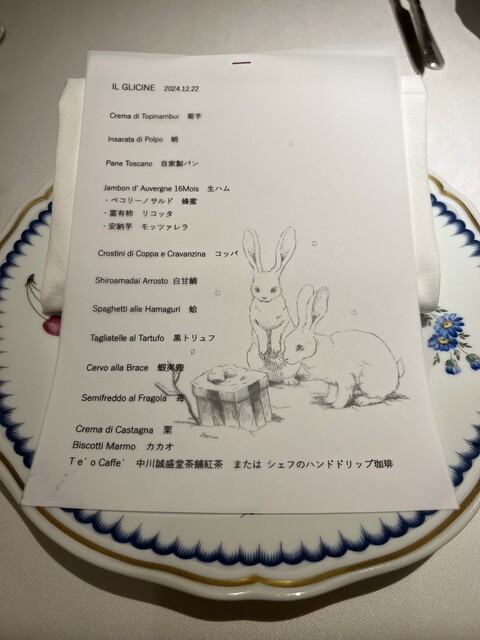 IL GLICINE 2024.12.22
Crema di Topinambur 菊芋
Insarata di Polpo 蛸
Pane Toscano 自家製パン
Jambon d' Auvergne 16Mois 生ハム
・ペコリーノサルド 蜂蜜
・富有柿 リコッタ
・安納芋 モッツァレラ
Crostini di Coppa e Cravanzina コッパ
Shiroamadai Arrosto 白甘鯛
Spaghetti alle Hamaguri 蛤
Tagliatelle al Tartufo 黒トリュフ
Cervo alla Brace 蝦夷鹿
Semifreddo al Fragola 苺
Crema di Castagna 栗
Biscotti Marmo カカオ
Te` o Caffe` 中川誠盛堂茶舗紅茶 または シェフのハンドドリップ珈琲